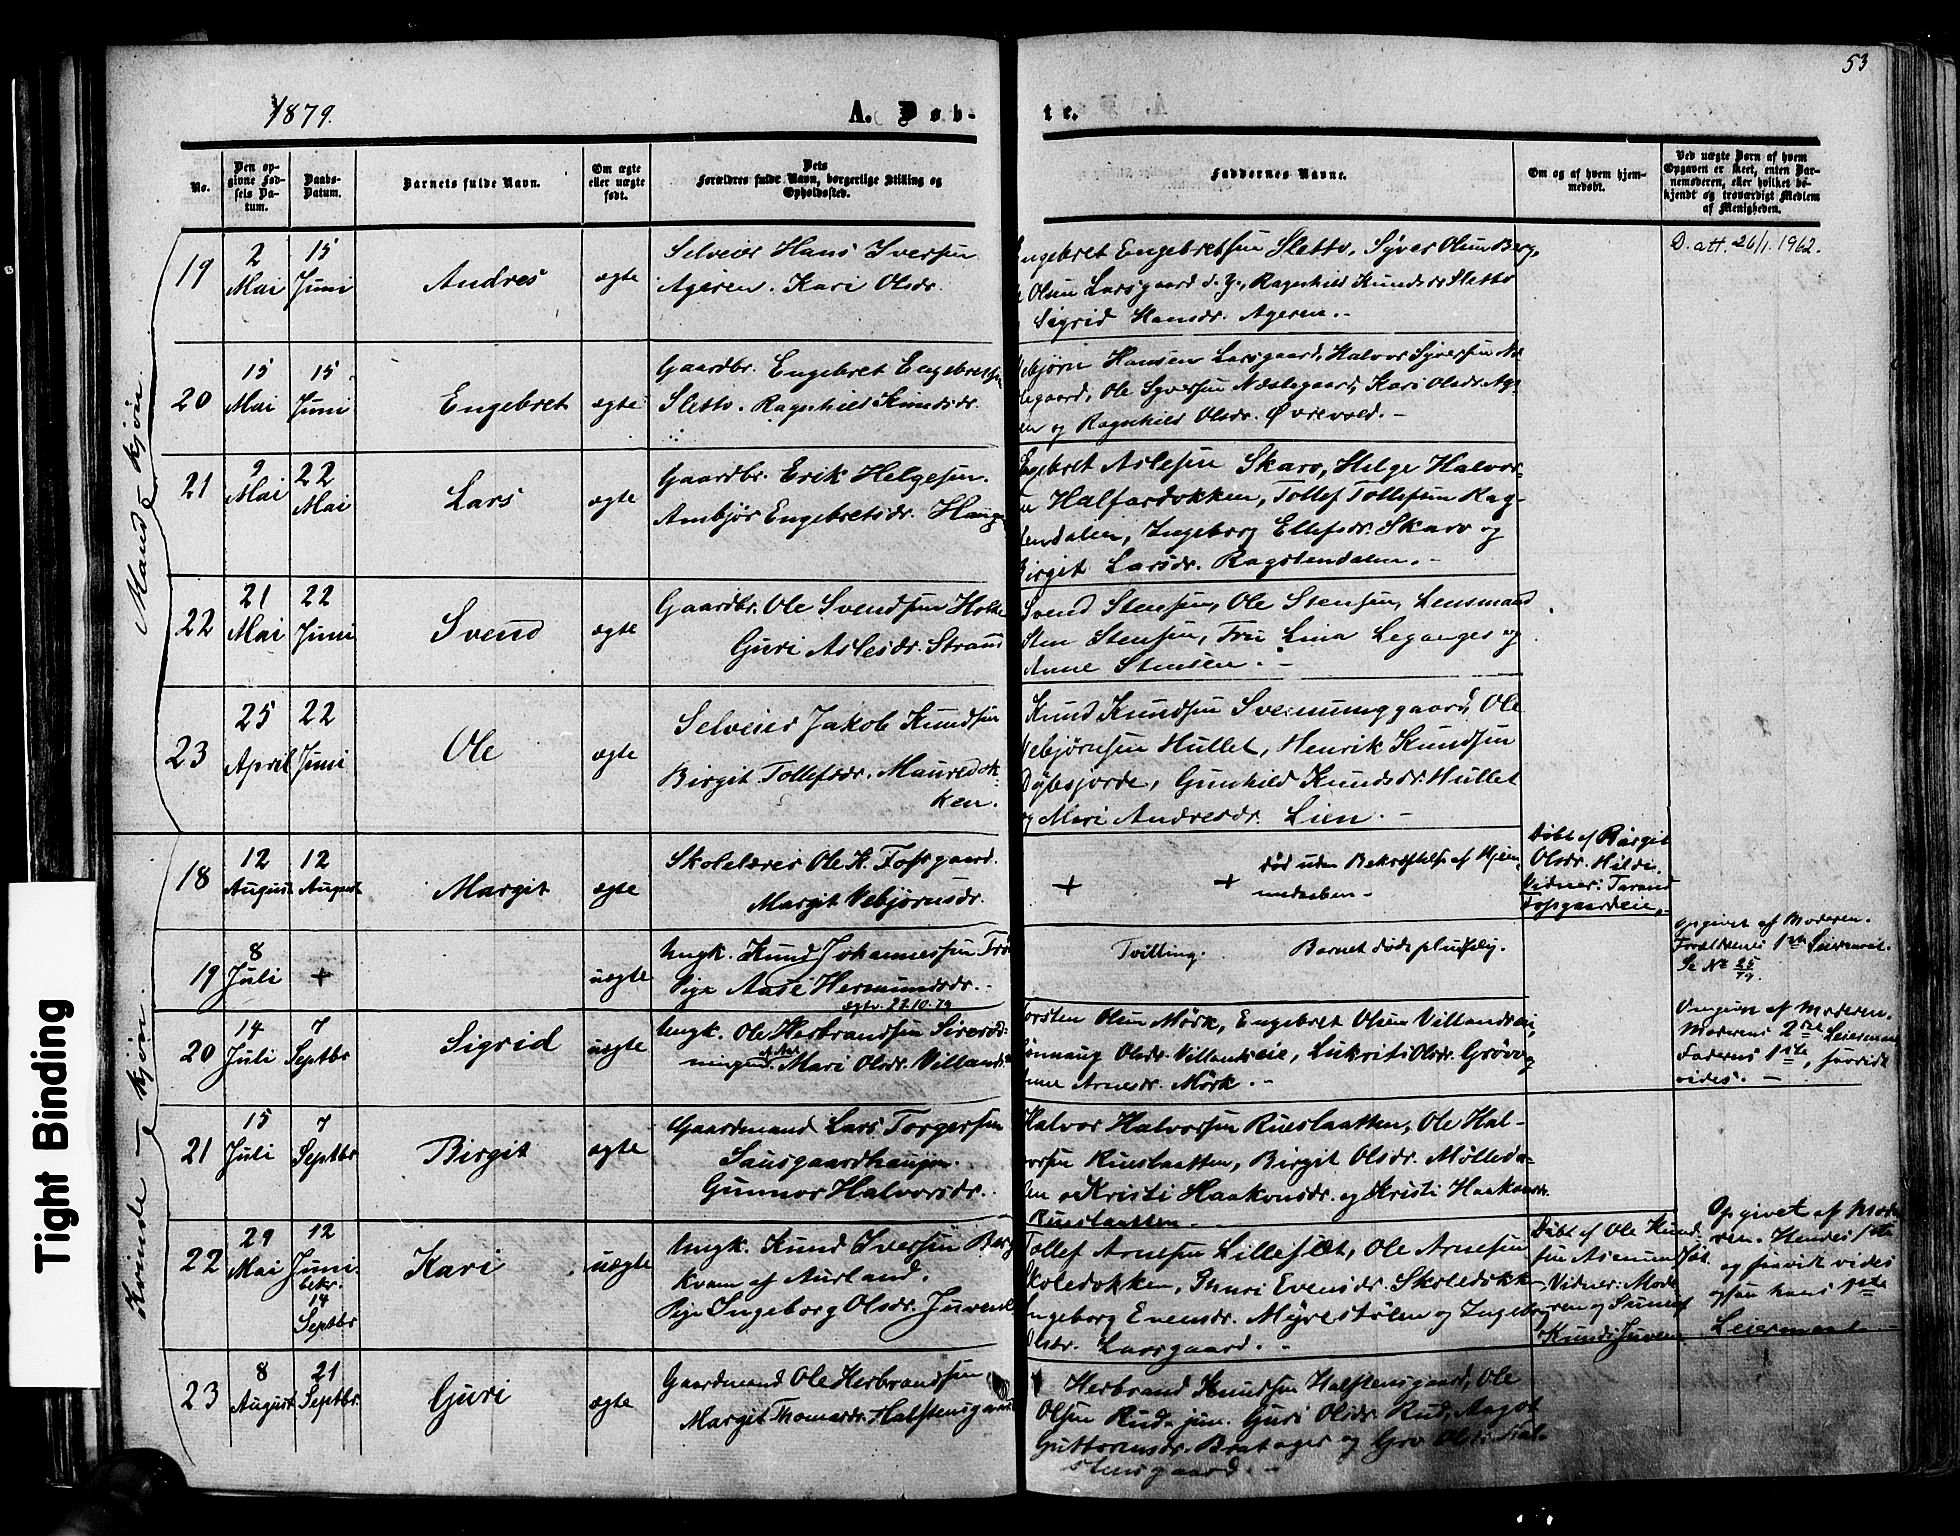 53
1879.
A. Døb-
te.
No.
Den op-
givne Fød-
sels Da-
tum.
Daabs-
Datum.
Barnets fulde Navn.
Om ægte
eller uægte
født.
Dets
Forældres fulde Navn, borgerlige Stilling og
Opholdssted.
Faddernes Navne.
Om og af hvem hjem-
medøbt.
Ved uægte Børn af hvem
Opgaven er skeet, enten Bar-
nemoderen, eller hvilket be-
kjendt og troværdigt Medlem
af Menigheden.
Mandekjøn.
19
2
Mai
15
Juni
Andres
ægte
Selveier Hans Iversen
Ageren. Kari Olsdr.
Engebret Engebretsen Sletto, Syver Olsen Berg,
Olsen Larsgaard d. y., Ragnhild Knudsdr Sletto
Sigrid Hansdr. Ageren.-
D. att 26/1 1962.
20
15
Mai
15
Juni
Engebret
ægte
Gaardbr. Engebret Engebretsen
Sletto. Ragnhild Knudsdr.
Vebjørn Hansen Larsgaard, Halvor Syversen Næ-
legaard, Ole Syversen Næslegaard, Kari Olsdr. Age-
ren og Ragnhild Olsdr. Øvrevold.-
21
9
Mai
22
Mai
Lars
ægte
Gaardbr. Erik Helgesen.
Ambjør Engebretsdr. Hauge
Engebret Aslesen Skaro, Helge Halvor-
sen Halfardokken, Tollef Tollefsen Rag-
stendalen, Ingeborg Ellefsdr. Skaro og
Birgit Larsdr. Ragstendalen.-
22
21
Mai
22
Juni
Svend
ægte
Gaardbr. Ole Svendsen Holto
Guri Aslesdr. Strand
Svend Stensen, Ole Stensen, Lensmand
Sten Stensen, Fru Lina Leganger og
Anne Stensen.-
23
25
April
22
Juni
Ole
ægte
Selveier Jakob Knudsen
Birgit Tollefsdr. Mauredok-
ken.
Knud Knudsen Sveinunggaard, Ole
Vebjørnsen Hullet, Henrik Knudsen
Dybsjorde, Gunhild Knudsdr. Hullet
og Mari Andresdr. Lien.-
Kvindekjøn.
18
12
August
12
August
Margit
ægte
Skolelærer Ole K. Fossgaard.
Margit Vebjørnsdr.
+
+ død uden Bekræftelse af Hjem-
medaaben-
Døbt af Birgit
Olsdr. Hilde.
Vidner: Tarand
Fossgaardeie.
19
8
Juli
+
uægte
Ungk. Knud Johannessen
Pige Aase Hermundsdr.-
Tvilling. Barnet døde pludselig.
Opgivet af Moderen.
Forældrenes 1ste Leiermaal.
Se No 25/79.
20
14
Juli
7
Septbr
Sigrid
uægte
ægtv. 22.10.79
Ungk. Ole Herbrandsen
Mari Olsdr. Villands
Torsten Olsen Mørk, Engebret Olsen Villandseie,
Rønnaug Olsdr. Villandseie, Lukrits Olsdr. Grøvo
Anne Arnesdr. Mørk.-
af Moderen.
Moderens 2det Leiermaal
Faderens 1ste, saavidt
vides.-
21
15
Juli
7
Septbr
Birgit
ægte
Gaardmand Lars Torgersen
Sausgaardhaugen.
Gunnor Halvorsdr.
Halvor Halvorsen Rueslaatten, Ole Hal-
vorsen Rueslaatten, Birgit Olsdr. Mølleda-
len Kristi Haakonsdr. og Kristi Haakonsdr.
Rueslaatten.-
22
29
Mai
12
Juni.
bekr.
14
Septbr
Kari
uægte
Ungk. Knud Iversen Berg
Kvam af Aurland.
Pige Ingeborg Olsdr. Juvene
Tollef Arnesen Lilleslæt, Ole Arnesen
Skoledokken, Guri Evensdr. Skoledokk
Ingeborg Evensdr. Myrestølen og Ingeborg
Olsdr. Larsgaard.-
Døbt af Ole Knud-
sen
Vidner: Mode-
ren og
Knudsdr Juven
Opgivet af Mode-
ren. Hendes 1ste
og saavidt vides
ogsaa hans 1ste
Leiermaal.-
23
8
August
21
Septbr.
Guri
ægte
Gaardmand Ole Herbrandsen
Margit Thomasdr. Halstensgaard
Herbrand Knudsen Halstensgaard, Ole
Olsen Rud jun. Guri Olsdr. Rud, Aagot
Guttormsdr. Bratager og Gro Olsdr. Hal-
stensgaard.-
Tight Binding